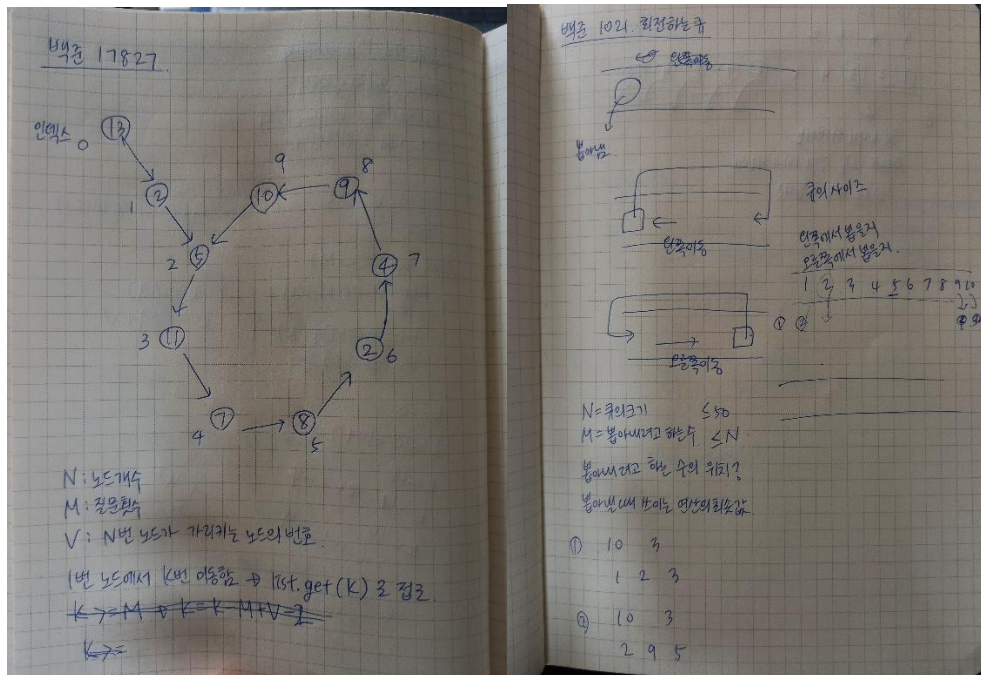 백준 17827.
인덱스 0 13
9
8
1 2
10
9
2 5
4 7
3 11
2 6
7
4
8
5
N : 노드개수
M : 질문횟수
V : N번 노드가 가리키는 노드의 번호.
1번 노드에서 K번 이동함 → list.get(K) 로 접근.
K>=M → K=K-M+V-2
K>=
백준 1021. 회전하는 큐
왼쪽이동
뽑아냄
큐의 사이즈
왼쪽이동
왼쪽에서 뽑을지
오른쪽에서 뽑을지
1 2 3 4 5 6 7 8 9 10
① ②
오른쪽이동
N = 큐의크기 ≤50
M = 뽑아내려고 하는 수 ≤N
뽑아내려고 하는 수의 위치?
뽑아낼 때 쓰이는 연산의 최솟값
① 10 3
1 2 3
② 10 3
2 9 5